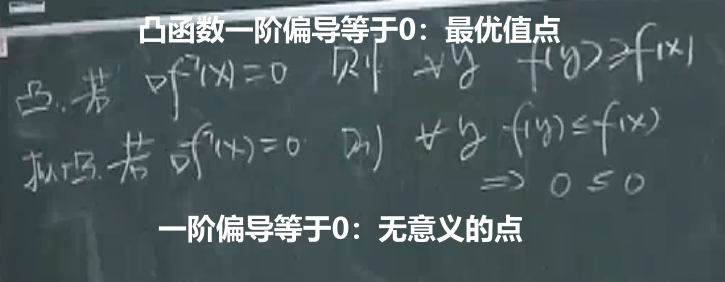 凸函数一阶偏导等于0：最优值点
凸. 若 ∇fᵀ(x)=0 则 ∀y f(y)≥f(x)
拟凸. 若 ∇fᵀ(x)=0 则 ∀y f(y)≤f(x)
⇒ 0≤0
一阶偏导等于0：无意义的点